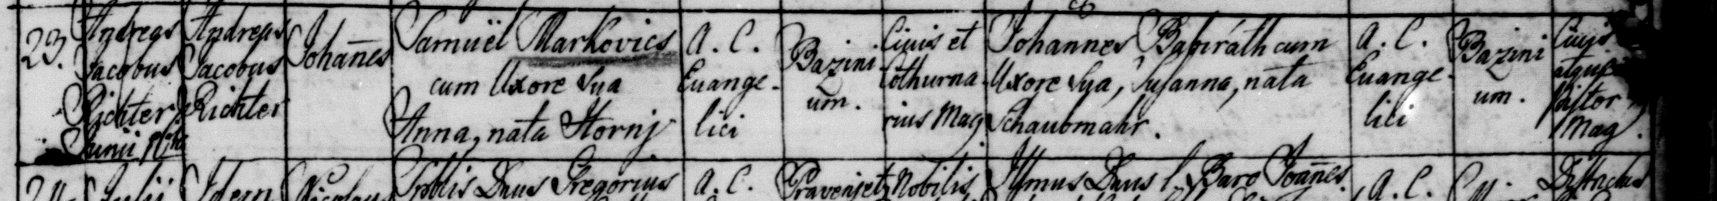 23.
Andreas
Jacobus
Richter
Junii
Andreas
Jacobus
Richter
Johañes
Samuël Markovics
cum Uxore Sua
Anna, nata Hornj
A. C.
Evange-
lici
Bazini
um.
Civis et
Cothurna-
rius Mag.
Johannes cum
Uxore Sua, Susanna, nata
Schaubmahr.
A. C.
Evange-
lici
Bazini
um.
Civis
atque
Pistor
Mag.
24.
Julii
Idem
Nicolaus
Gregorius
A. C.
Nobilis
Baro Joañes
A. C.